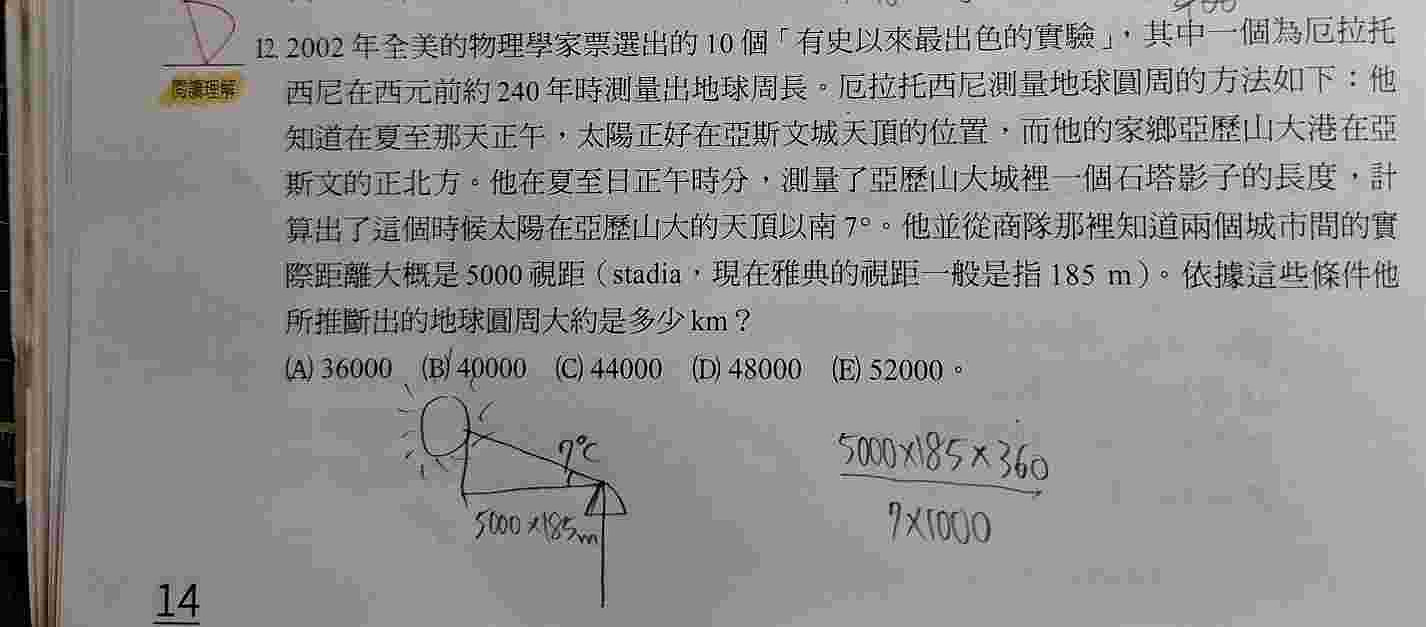 D
閱讀理解
12. 2002 年全美的物理學家票選出的 10 個「有史以來最出色的實驗」，其中一個為厄拉托
西尼在西元前約 240 年時測量出地球周長。厄拉托西尼測量地球圓周的方法如下：他
知道在夏至那天正午，太陽正好在亞斯文城天頂的位置，而他的家鄉亞歷山大港在亞
斯文的正北方。他在夏至日正午時分，測量了亞歷山大城裡一個石塔影子的長度，計
算出了這個時候太陽在亞歷山大的天頂以南 7°。他並從商隊那裡知道兩個城市間的實
際距離大概是 5000 視距（stadia，現在雅典的視距一般是指 185 m）。依據這些條件他
所推斷出的地球圓周大約是多少 km？
(A) 36000 (B) 40000 (C) 44000 (D) 48000 (E) 52000。
7°C
5000×185m
5000×185×360
7×1000
14